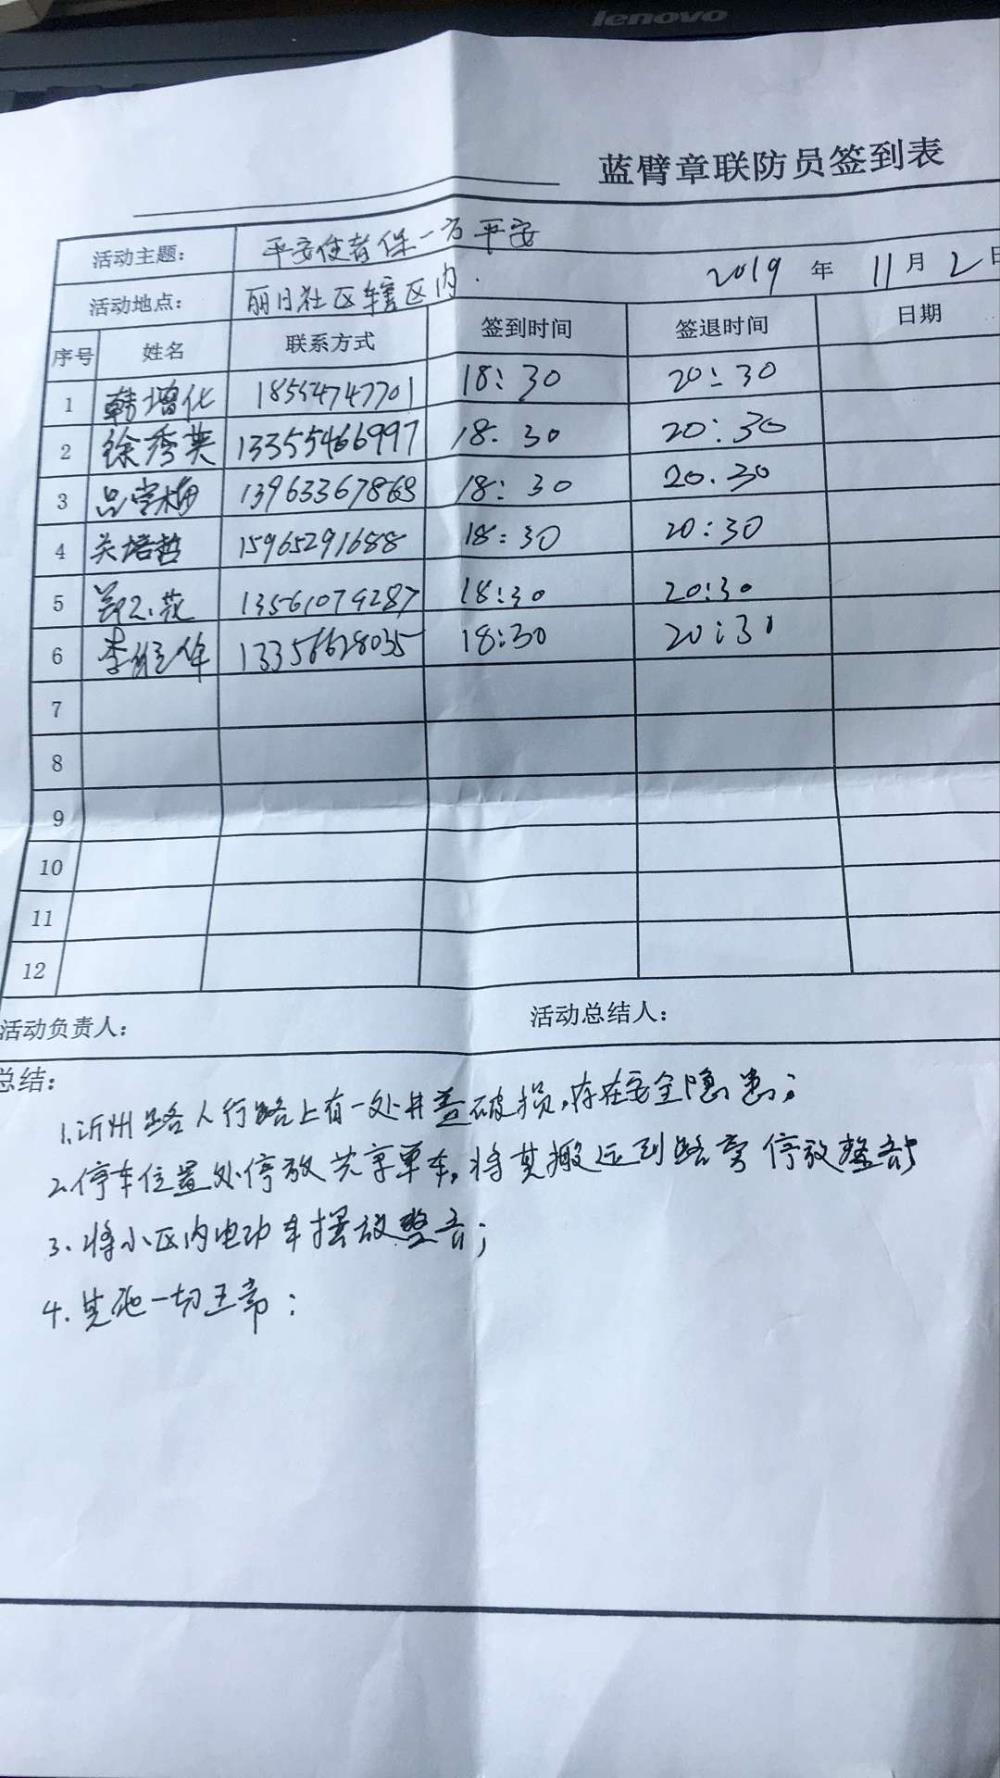 lenovo
蓝臂章联防员签到表
活动主题: 平安使者保一方平安
2019 年 11 月 2 日
活动地点: 丽日社区辖区内.
序号 姓名 联系方式 签到时间 签退时间 日期
1 韩增化 18554747701 18:30 20:30
2 徐秀英 13355466997 18.30 20:30
3 梅 13963367868 18:30 20.30
4 关培哲 15965291688 18:30 20:30
5 花 13561079287 18:30 20:30
6 李 13356628035 18:30 20:30
7
8
9
10
11
12
活动负责人: 活动总结人:
总结:
1.沂州路人行路上有一处井盖破损,存在安全隐患;
2.停车位置处停放共享单车,将其搬运到路旁停放整齐
3.将小区内电动车摆放整齐;
4.其他一切正常: